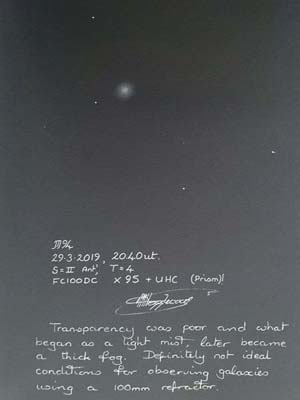 M94
29·3·2019, 2040ut.
S=II Ant', T=4
FC100DC x95 + UHC (Prism)!
Transparency was poor and what
began as a light mist, later became
a thick fog. Definitely not ideal
conditions for observing galaxies
using a 100mm refractor.